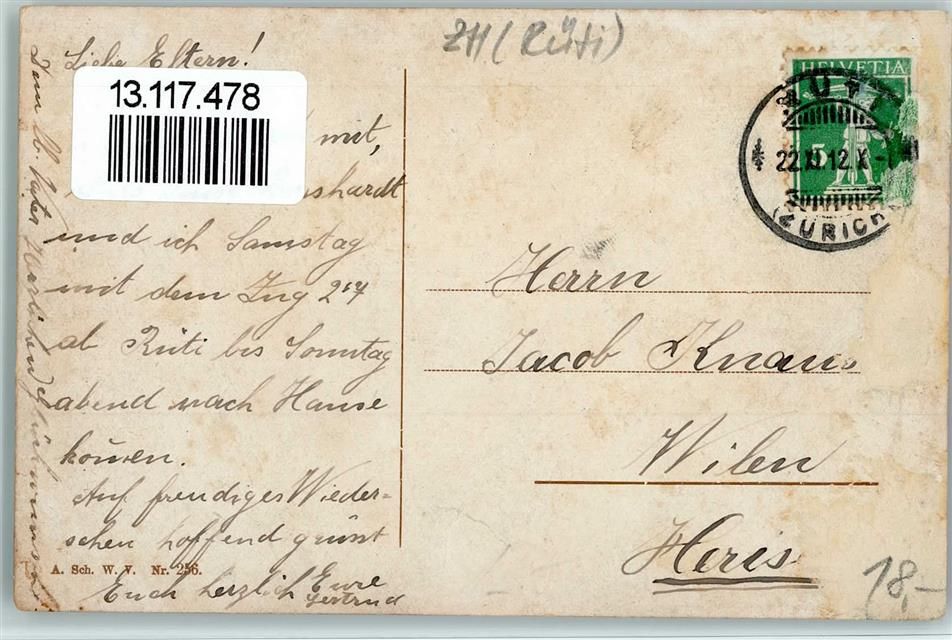 ZH (Rüti)
Liebe Eltern!
13.117.478
mit,
und ich Samstag
mit dem Zug 2⁵⁴
ab Rüti bis Sonntag
abend nach Hause
kom̄en.
Auf freudiges Wieder-
sehen hoffend grüsst
Euch herzlich Eure
Gertrud
A. Sch. W. V. Nr. 256.
HELVETIA
5
RÜTI
22.XI.12.X-
(ZÜRICH)
Herrn
Jacob Knaus
Wilen
Heris
18,-
Dem lb. Vater